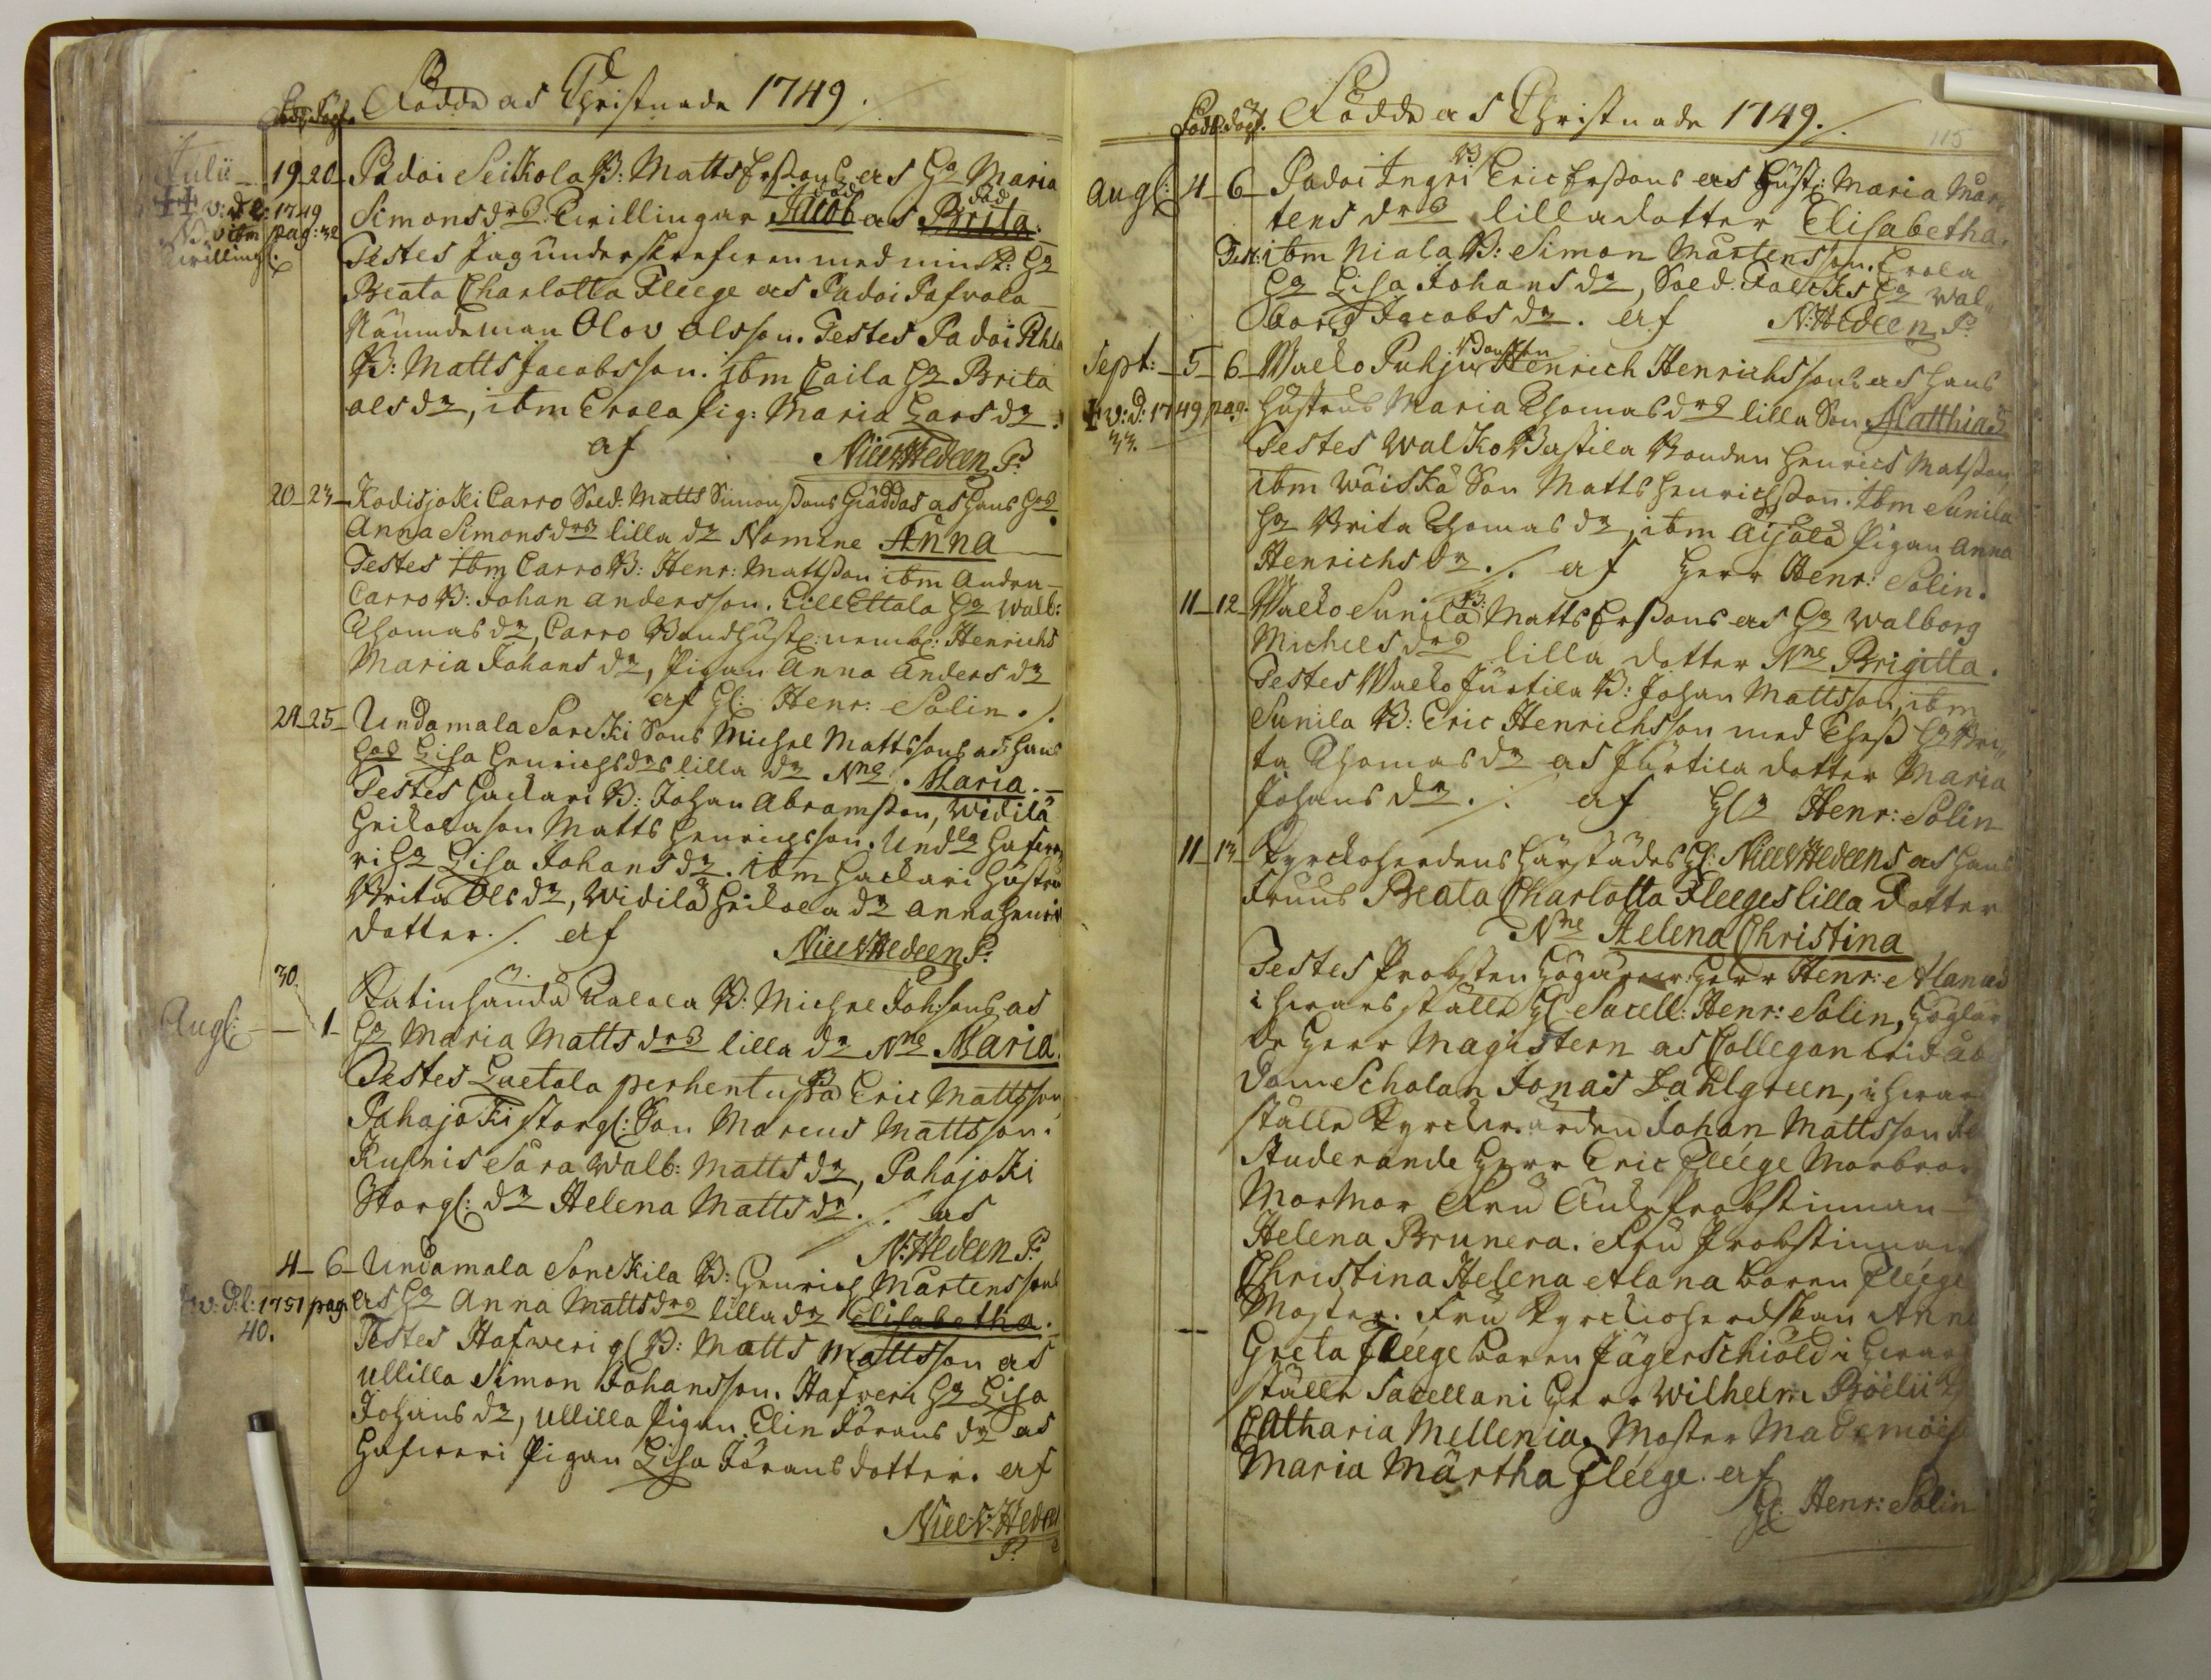 Född. Döpt. Födde as Christnade 1749.
Julii 19 20 Padoi Seikola B: Matts Erssons as Ha Maria
†† v: d l: 1749 Simons drs Twillingar Jacob död as Brita död.
N. v ibm pag: 32 Testes Jag underskrefwen med min K: Ha
Twilling:
Beata Charlotta Fleege as Padoi Pafwola
Nämndeman Olov Olsson. Testes Padoi
B: Matts Jacobsson. ibm Caila Ha Brita
Ols dr, ibm Erola pig: Maria Lars dr.
af Niels Hedeen P.
20 23 Kodisjoki Carro Sold: Matts Simonssons Gäddas as hans Hos
Anna Simons drs lilla dr Nomine Anna
Testes ibm Carro B: Henr: Mattsson ibm Andra
Carro B: Johan Andersson. Lill Ettala Ha Walb:
Thomas dr, Carro Bondhust: Henrichs
Maria Johans dr, Pigan Anna Anders dr
af Hl: Henr: Solin ./.
24 25 Undamala Sorcki Sons Michel Mattssons as hans
Hos Lisa Henrichsdrs lilla dr Nne. Maria.
Testes Hackari B: Johan Abramsson, Widilä
Heikola son Matts Henrichsson. Undla Hafwe
ri Ha Lisa Johans dr. ibm Hackari Hustru
Brita Ols dr, Widilä Heikola dr Anna Henrich
dotter ./. af Niels Hedeen P.
30. Ratinhanda Uolola B: Michel Joh:sons as
Aug: 1 Ha Maria Matts drs lilla dr Nne Maria.
Testes Luetola perhentupa B Eric Mattsson,
Pahajoki storg: Son Marcus Mattsson.
Kusnis Sara Walb: Matts dr, Pahajoki
Storg: dr Helena Matts dr ./. as
N: Hedeen P.
4 6 Undamala Sonckila B: Henrich Mårtenssons
v: d: l: 1751 pag. as Ha Anna Matts drs lilla dr Elisabetha.
40. Testes Hafweri gl B: Matts Mattsson as
Ullilla Simon Johansson. Hafweri Ha Lisa
Johans dr, Ullilla Pigan Elin Jörans dr as
Hafweri Pigan Lisa Jörans dotter. af
Niels Hedeen
P.
Född. döpt. Födde as Christnade 1749. ./.
115
Aug: 4 6 Padoi Ingri B Eric Erssons as Hust: Maria Mår
tens drs lilla dotter Elisabetha.
Test: ibm Niala B: Simon Mårtensson. Erola
Ha Lisa Johans dr, Sold. Falcks Ha Wal
borg Jacobs dr. af N: Hedeen P.
Sept: 5 6 Walko Puhju Bonden Henrich Henrichssons as hans
† v: d: 1749 pag. Hustrus Maria Thomas drs lilla Son Matthias
33. Testes Walko Bastila Bonden Henrics Matsson,
ibm Wäiskä Son Matts Henrichsson. ibm Sunila
Ha Brita Thomas dr, ibm Aijälä Pigan Anna
Henrichs dr ./. af Herr Henr: Solin.
11 12 Walko Sunila B: Matts Erssons as Ha Walborg
Michels drs lilla dotter Nne Brigitta.
Testes Walko Jurtila B: Johan Mattsson, ibm
Sunila B: Eric Henrichsson med Thess Ha Bri
ta Thomas dr as Jurtila dotter Maria
Johans dr ./. af Hlr Henr: Solin
11 13 Kyrckoherdens härstädes Hl: Niels Hedeens as hans
Fruus Beata Charlotta Fleeges lilla Dotter
Nne Helena Christina
Testes Probsten Herr Henr: Alanus
i hwars ställe Hl Sacell: Henr: Solin, Höglär
de Herr Magistern as Collegan wid Åbo
Dom Scholan Jonas Dahlgreen, i hwars
ställe Kyrckiwärden Johan Mattsson
Studerande Herr Eric Fleege Morbror
Mormor Fru Änke Probstinnan
Helena Brunera. Fru Probstinnan
Christina Helena Alana boren Fleege
Moster. Fru Kyrckioherdskan Anna
Greta Fleege boren Jägerschiöld i hwars
ställe Sacellani Herr Wilhelm Böelii
Catharia Mellenia. Moster Mademoise
Maria Märtha Fleege. af
Hl: Henr: Solin